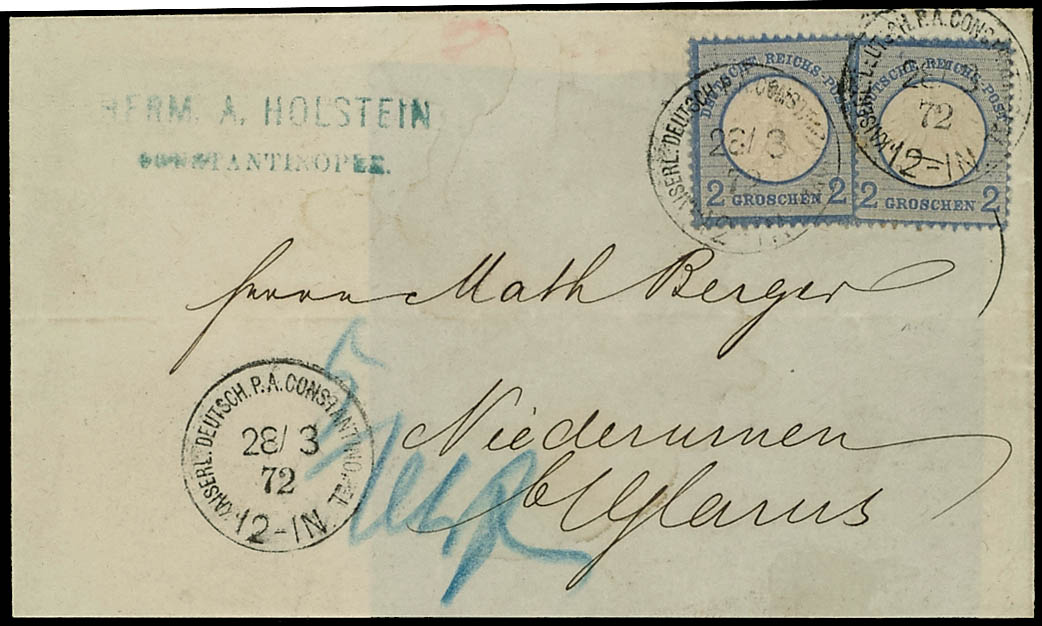 HERM. A. HOLSTEIN
CONSTANTINOPEL.
DEUTSCHE REICHS-POST
2 GROSCHEN 2
DEUTSCHE REICHS-POST
2 GROSCHEN 2
KAISERL. DEUTSCH. P.A. CONSTANTINOPEL
28/3
72
12-1N
KAISERL. DEUTSCH. P.A. CONSTANTINOPEL
28/3
72
12-1N
Herrn Math Berger
Niederurnen
b/Glarus
KAISERL. DEUTSCH. P.A. CONSTANTINOPEL
28/3
72
12-1N